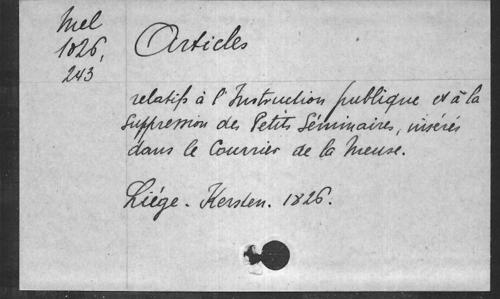 Mel
1826,
243
Articles
relatifs à l'Instruction publique et à la
suppression des Petits Séminaires, insérés
dans le Courrier de la Meuse.
Liége. Kersten. 1826.